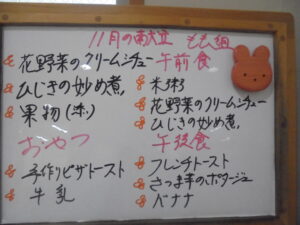 11月の献立 もも組
花野菜のクリームシチュー
ひじきの炒め煮
果物(柿)
おやつ
手作りピザトースト
牛乳
午前食
米粥
花野菜のクリームシチュー
ひじきの炒め煮
午後食
フレンチトースト
さつま芋のポタージュ
バナナ